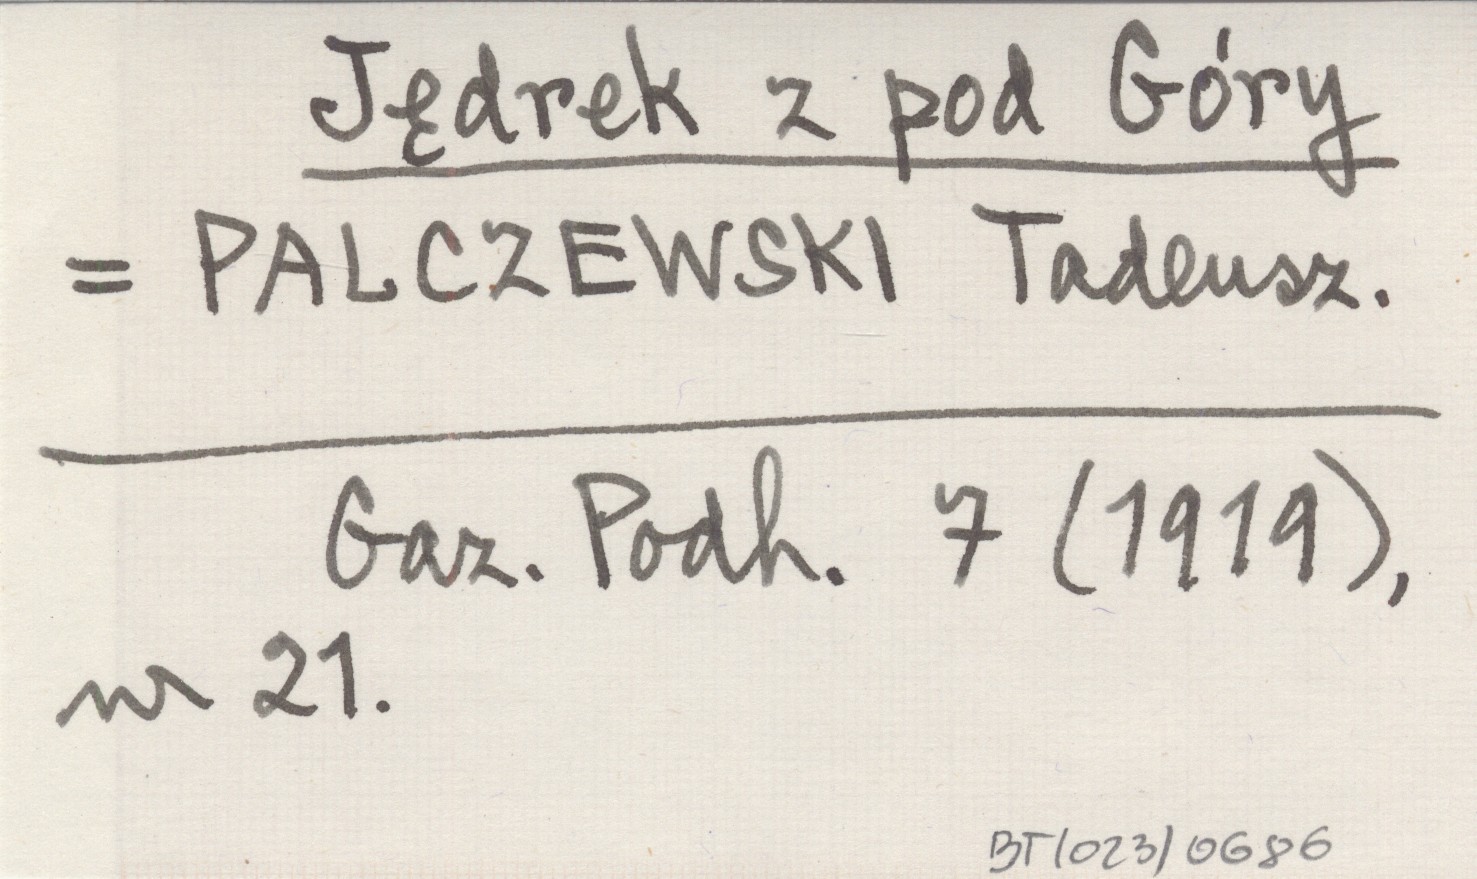 Jędrek z pod Góry
= PALCZEWSKI Tadeusz.
Gaz. Podh. 7 (1919),
nr 21.
BT/023/0686